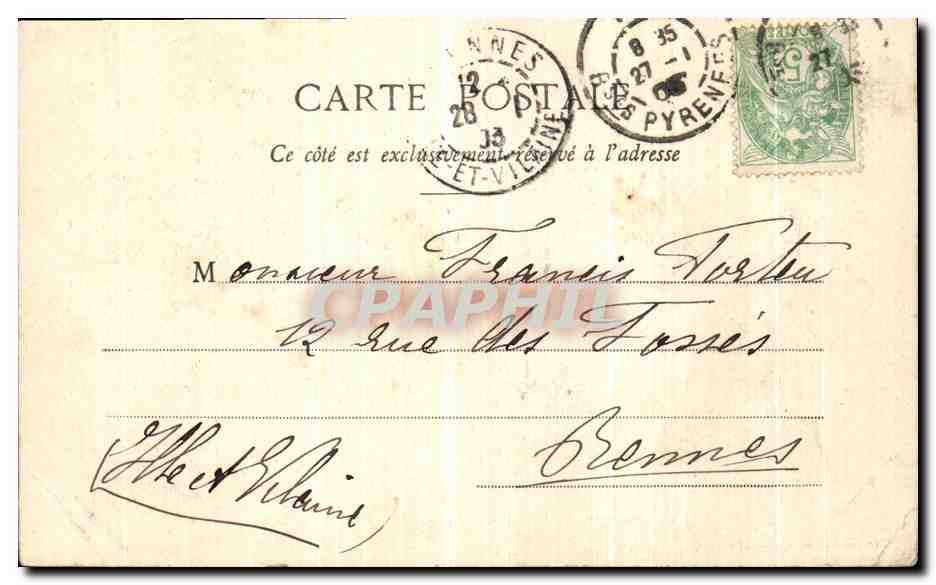 CARTE POSTALE
Ce côté est exclusivement réservé à l'adresse
RENNES
12
28 1
03
ILLE-ET-VILAINE
8 35
27 -1
Bses PYRENEES
5
8 35
27
Monsieur Francis Porteu
12 rue des Fossés
Rennes
(Ille et Vilaine)
CPAPHIL